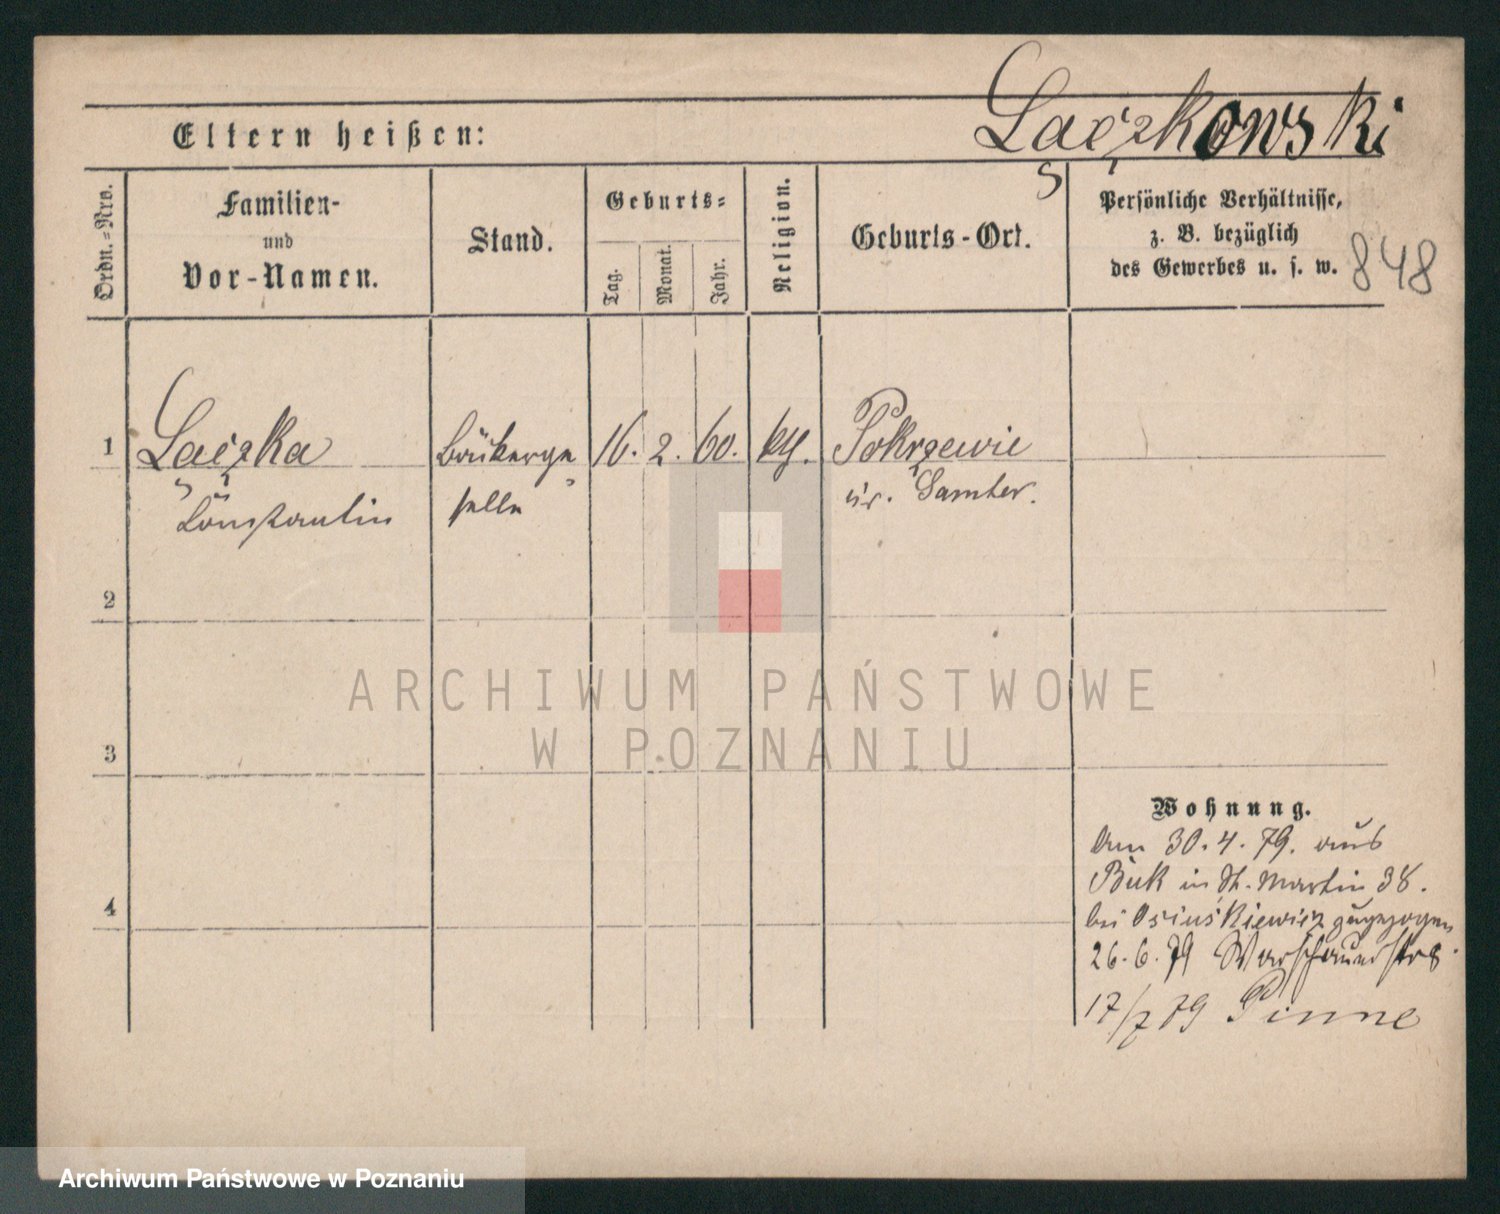 Laczkowski
Eltern heißen:
Ordn.-Nro.
Familien-
und
Vor-Namen.
Stand.
Geburts-
Tag.
Monat.
Jahr.
Religion.
Geburts-Ort.
Persönliche Verhältnisse,
z. B. bezüglich
des Gewerbes u. s. w.
848
1 Laczka 16. 2. 60. Pokrzewie
Constantin selle Kr. Samter.
2
3
4
Wohnung.
Am 30.4.79. aus
Buk in St. Martin 38.
bei Osinskiewicz zugezogen
26.6.79 Warschauerstr 8.
17/7 79 Pinne
ARCHIWUM PAŃSTWOWE
W POZNANIU
Archiwum Państwowe w Poznaniu